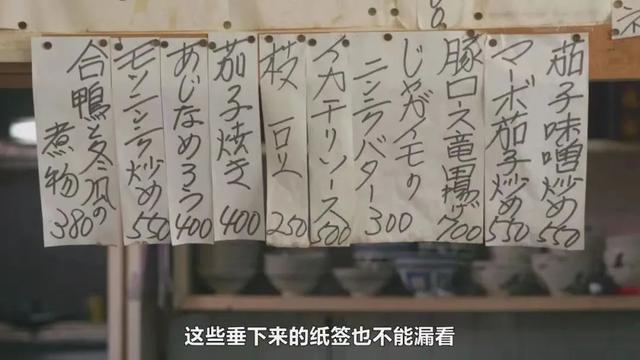 茄子味噌炒め 550
マーボ茄子炒め 550
豚ロース竜田揚げ 700
じゃがイモの
ニンニクバター 300
イカチリソース 500
枝 250
茄子焼き 400
あじなめろう 400
モツニンニク炒め 550
合鴨と冬瓜の
煮物 380
这些垂下来的纸签也不能漏看